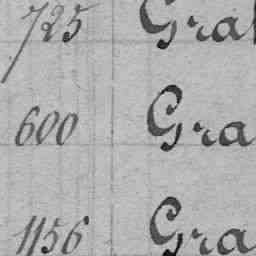 725 Gra
600 Gra
1156 Gra